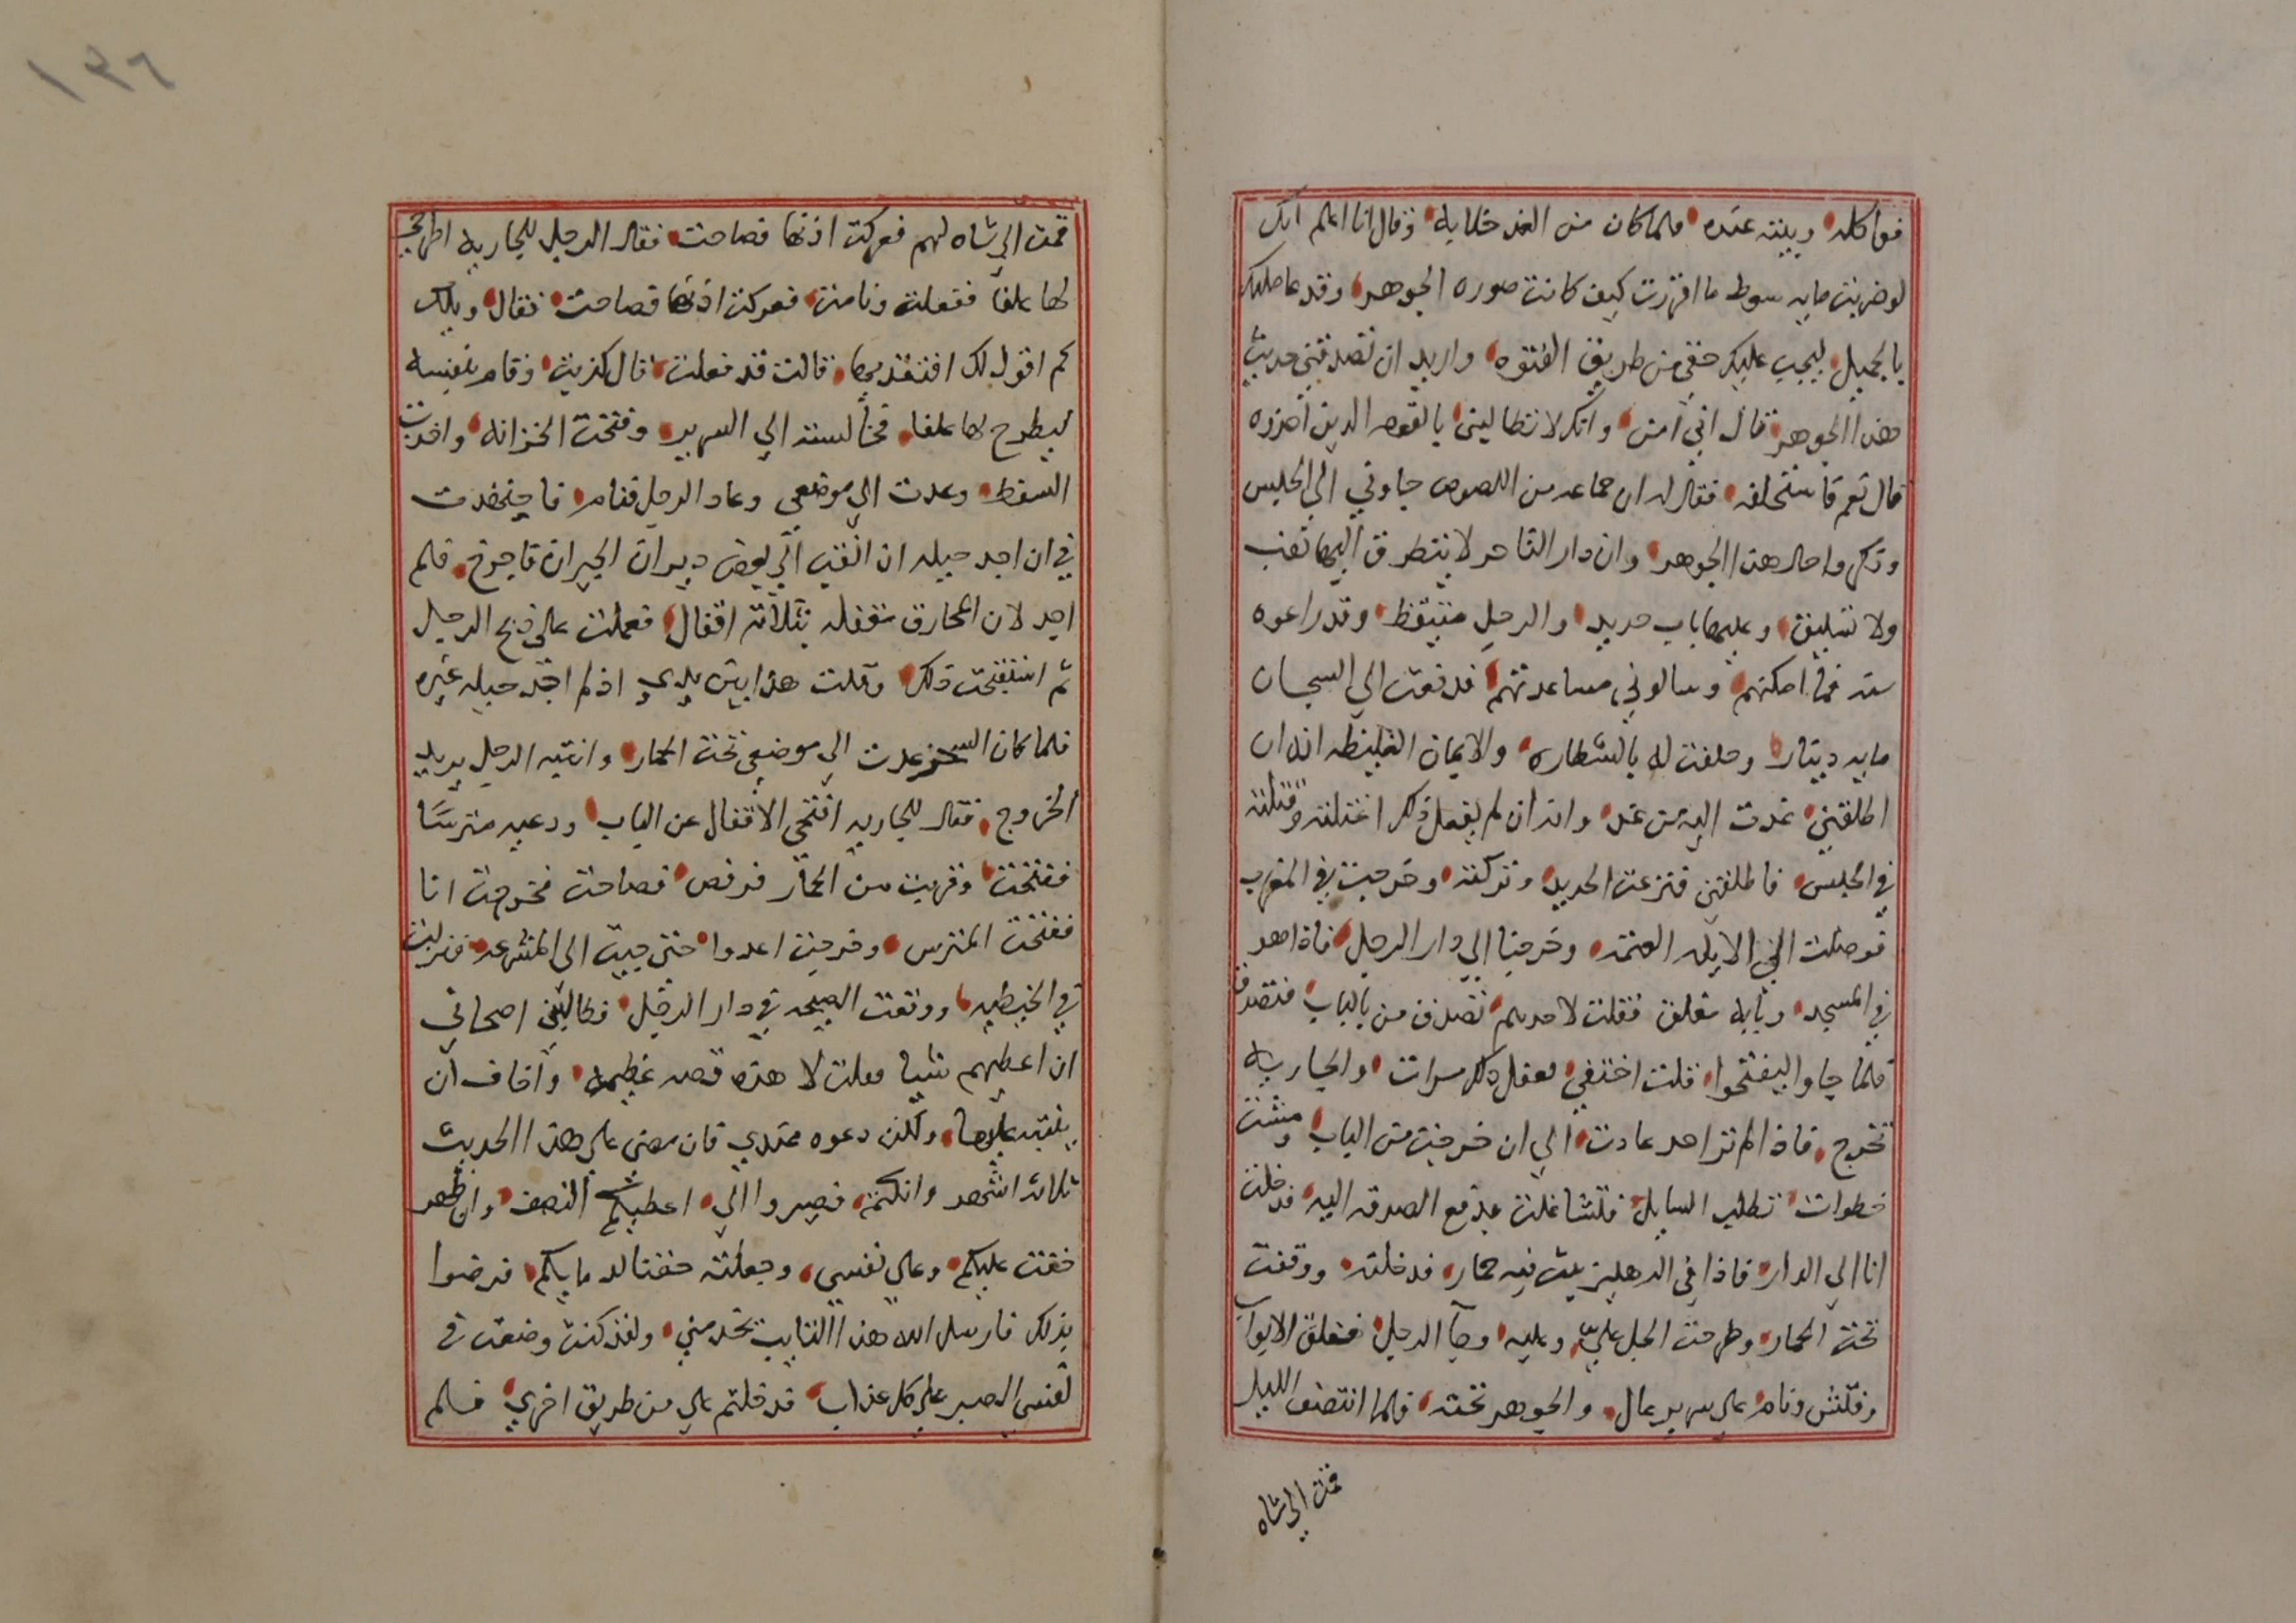 فواكله وبيته عنده فلما كان من الغد خلا به وقال انا اعلم انك
لو ضربت مايه سوط ما اقررت كيف كانت صوره الجوهر وقد عاملتك
بالجميل ليجب عليك حقي من طريق الفتوه واريد ان تصدقني حديث
هذا الجوهر فقال اني آمن وانك لا تطالبني بالقوم الذين اخذوه
قال نعم فاستحلفه فقال له ان جماعه من اللصوص جاوني الي الحبس
وذكروا حال هذا الجوهر وان دار التاجر لا يتطرق اليها نقب
ولا تسليق وعليها باب حديد والرجل متيقظ وقد راعوه
سنه فما امكنهم وسالوني مساعدتهم فدفعت الي السجان
مايه دينار وحلفت له بالشطاره والايمان الغليظه انه ان
اطلقني عدت اليه من غد وانه ان لم يفعل ذلك اغتلته وقتلته
في الحبس فاطلقني فنزعت الحديد وتركته وخرجت في المغرب
فوصلت الي الابله العتمه وخرجنا الي دار الرجل فاذا هو
في المسجد وبابه مغلق فقلت لاحدهم تصدق من بالباب فتصدق
فلما جاوا ليفتحوا قلت اختفي ففعل ذلك مرات والجاريه
تخرج فاذا لم تر احد عادت الي ان خرجت من الباب ومشت
خطوات تطلب السايل فتشاغلت بدفع الصدقه اليه فدخلت
انا الي الدار فاذا في الدهليز بيت فيه حمار فدخلته ووقفت
تحت الحمار وطرحت الجل علي وعليه وجآ الرجل فغلق الابواب
وفتش ونام علي سرير عال والجوهر تحته فلما انتصف الليل
قمت الي شاه
قمت الي شاه لهم فعركت اذنها فصاحت فقال الرجل للجاريه اطرحي
لها علفا ففعلت ونامت فعركت اذنها فصاحت فقال ويلك
كم اقول لك افتقديها قالت قد فعلت قال كذبت وقام بنفسه
ليطرح لها علفا فجالست الي السرير وفتحت الخزانه واخذت
السفط وعدت الي موضعي وعاد الرجل فنام فاجتهدت
في ان اجد حيله ان انقب الي بعض ديران الجيران فاخرج فلم
اجد لان المخارق مقفله بثلاثه اقفال فعملت علي ذبح الرجل
ثم استقبحت ذلك وقلت هذا بين يدي اذ لم اجد حيله غيره
فلما كان السحر عدت الي موضعي تحت الحمار وانتبه الرجل يريد
الخروج فقال للجاريه افتحي الاقفال عن الباب ودعيه مترسا
ففتحت وقربت من الحمار فرفص فصاحت فخرجت انا
ففتحت المترس وخرجت اعدوا حتي جيت الي المشرعه فنزلت
في الخيطيه ووقعت الصيحه في دار الرجل فطالبني اصحابي
ان اعطيهم شيا فقلت لا هذه قصه عظيمه واخاف ان
يتنبه عليها ولكن دعوه عندي فان مضي علي هذا الحديث
ثلاثه اشهر وانكتم فصيروا الي اعطيكم النصف وان ظهر
خفت عليكم وعلي نفسي وجعلته حقنا لدمايكم فرضوا
بذلك فارسل الله هذا النايب يخدمني ولقد كنت وضعت في
نفسي الصبر علي كل عذاب فدخلتم علي من طريق اخري فلم